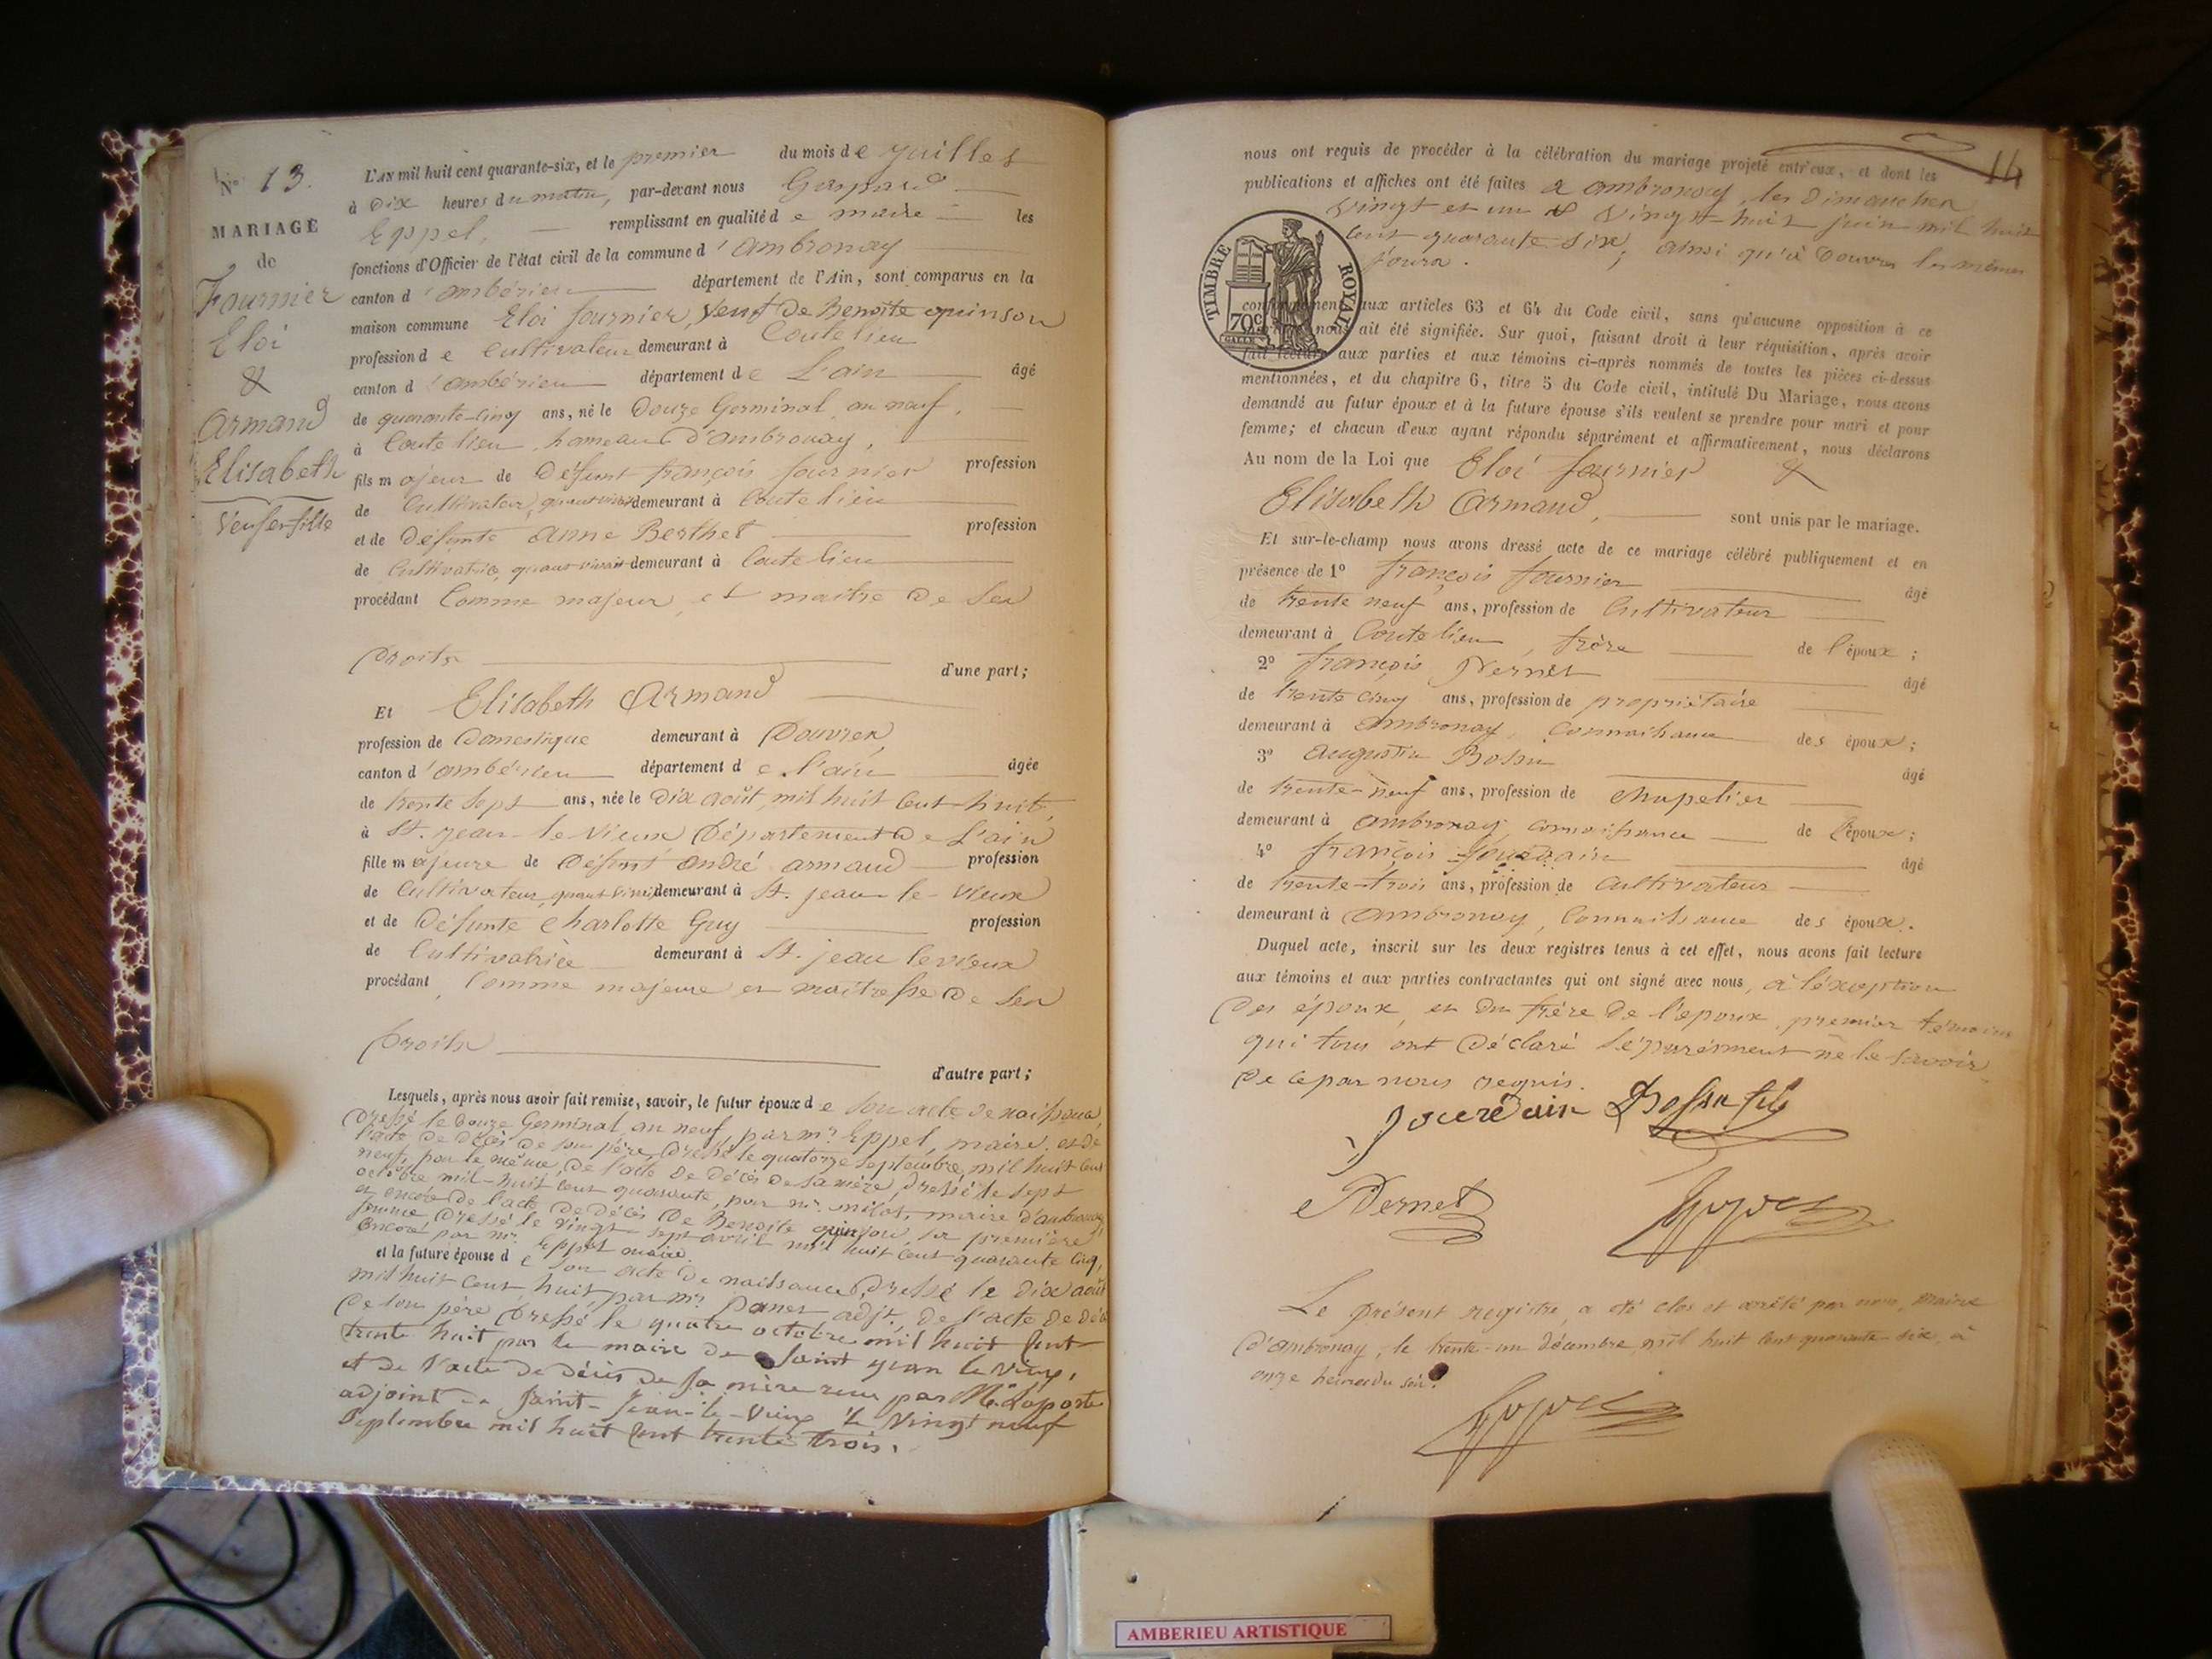 N° 13.
MARIAGE
de
Fournier
Eloi
&
Armand
Elisabeth
veuf et fille
L'AN mil huit cent quarante-six, et le premier du mois de juillet
à dix heures du matin, par-devant nous Gaspard
Eppel, remplissant en qualité de maire les
fonctions d'Officier de l'état civil de la commune d'ambronay
canton d'ambérieu département de l'Ain, sont comparus en la
maison commune Eloi fournier, veuf de Benoite quinson
profession de cultivateur demeurant à Coutelieu
canton d'ambérieu département de L'ain âgé
de quarante-cinq ans, né le Douze Germinal, an neuf,
à Coutelieu, hameau d'ambronay,
fils majeur de Défunt françois fournier profession
de Cultivateur, quant vivait demeurant à Coutelieu
et de Défunte anne Berthet profession
de Cultivatrice, quant vivait demeurant à Coutelieu
procédant Comme majeur, et maitre de ses
Droits d'une part;
Et Elisabeth Armand
profession de Domestique demeurant à Douvres,
canton d'ambérieu département de l'ain âgée
de trente sept ans, née le dix août, mil huit cent huit,
à St. jean-le vieux Département de L'ain
fille majeure de Défunt andré armand profession
de Cultivateur, quant vivait demeurant à St. jean-le-vieux
et de Défunte Charlotte Guy profession
de Cultivatrice demeurant à St. jean le vieux
procédant Comme majeure et maitresse de ses
Droits d'autre part;
Lesquels, après nous avoir fait remise, savoir, le futur époux de son acte de naissance,
dressé le douze Germinal, an neuf, par mr. Eppel, maire, et de
l'acte de décès de son père, dressé le quatorze septembre, mil huit cent
neuf, par le même, de l'acte de décès de sa mère, dressé le sept
octobre mil-huit cent quarante, par mr. milot, maire d'ambronay,
et encore de l'acte de décès de Benoite quinson, sa première
femme, dressé le vingt-sept avril mil huit cent quarante cinq,
encore par mr. Eppel maire
et la future épouse de son acte de naissance, dressé le dix août
mil huit cent huit, par mr. Panet adjt, de l'acte de décès
de son père dressé le quatre octobre mil huit cent
trente huit par le maire de Saint jean le vieux,
et de l'acte de décès de sa mère reçu par Mr. Laporte
adjoint de Saint-Jean-le-Vieux le vingt neuf
Septembre mil huit cent trente trois.
14
nous ont requis de procéder à la célébration du mariage projeté entr'eux, et dont les
publications et affiches ont été faites à ambronay, les Dimanches
vingt et un & vingt-huit juin mil huit
cent quarante six; ainsi qu'à Douvres les mêmes
jours.
TIMBRE ROYAL
70c
conformément aux articles 63 et 64 du Code civil, sans qu'aucune opposition à ce
nous ait été signifiée. Sur quoi, faisant droit à leur réquisition, après avoir
fait lecture aux parties et aux témoins ci-après nommés de toutes les pièces ci-dessus
mentionnées, et du chapitre 6, titre 5 du Code civil, intitulé Du Mariage, nous avons
demandé au futur époux et à la future épouse s'ils veulent se prendre pour mari et pour
femme; et chacun d'eux ayant répondu séparément et affirmativement, nous déclarons
Au nom de la Loi que Eloi fournier &
Elisabeth Armand, sont unis par le mariage.
Et sur-le-champ nous avons dressé acte de ce mariage célébré publiquement et en
présence de 1° françois fournier âgé
de trente neuf ans, profession de Cultivateur
demeurant à Coutelieu, frère de l'époux;
2° françois Vernet âgé
de trente cinq ans, profession de propriétaire
demeurant à ambronay, connaissance des époux;
3° augustin Bossu âgé
de trente-neuf ans, profession de chapelier
demeurant à ambronay, connaissance de l'époux;
4° françois jourdain âgé
de trente-trois ans, profession de cultivateur
demeurant à ambronay, connaissance des époux.
Duquel acte, inscrit sur les deux registres tenus à cet effet, nous avons fait lecture
aux témoins et aux parties contractantes qui ont signé avec nous, à l'éxception
des époux, et du frère de l'époux, premier témoin
qui tous ont déclaré séparément ne le savoir
de ce par nous requis.
Jourdain Bossu fils
Vernet
Le présent registre a été clos et arrêté par nous, maire
d'ambronay, le trente-un décembre mil huit cent quarante-six à
onze heures du soir.
AMBERIEU ARTISTIQUE